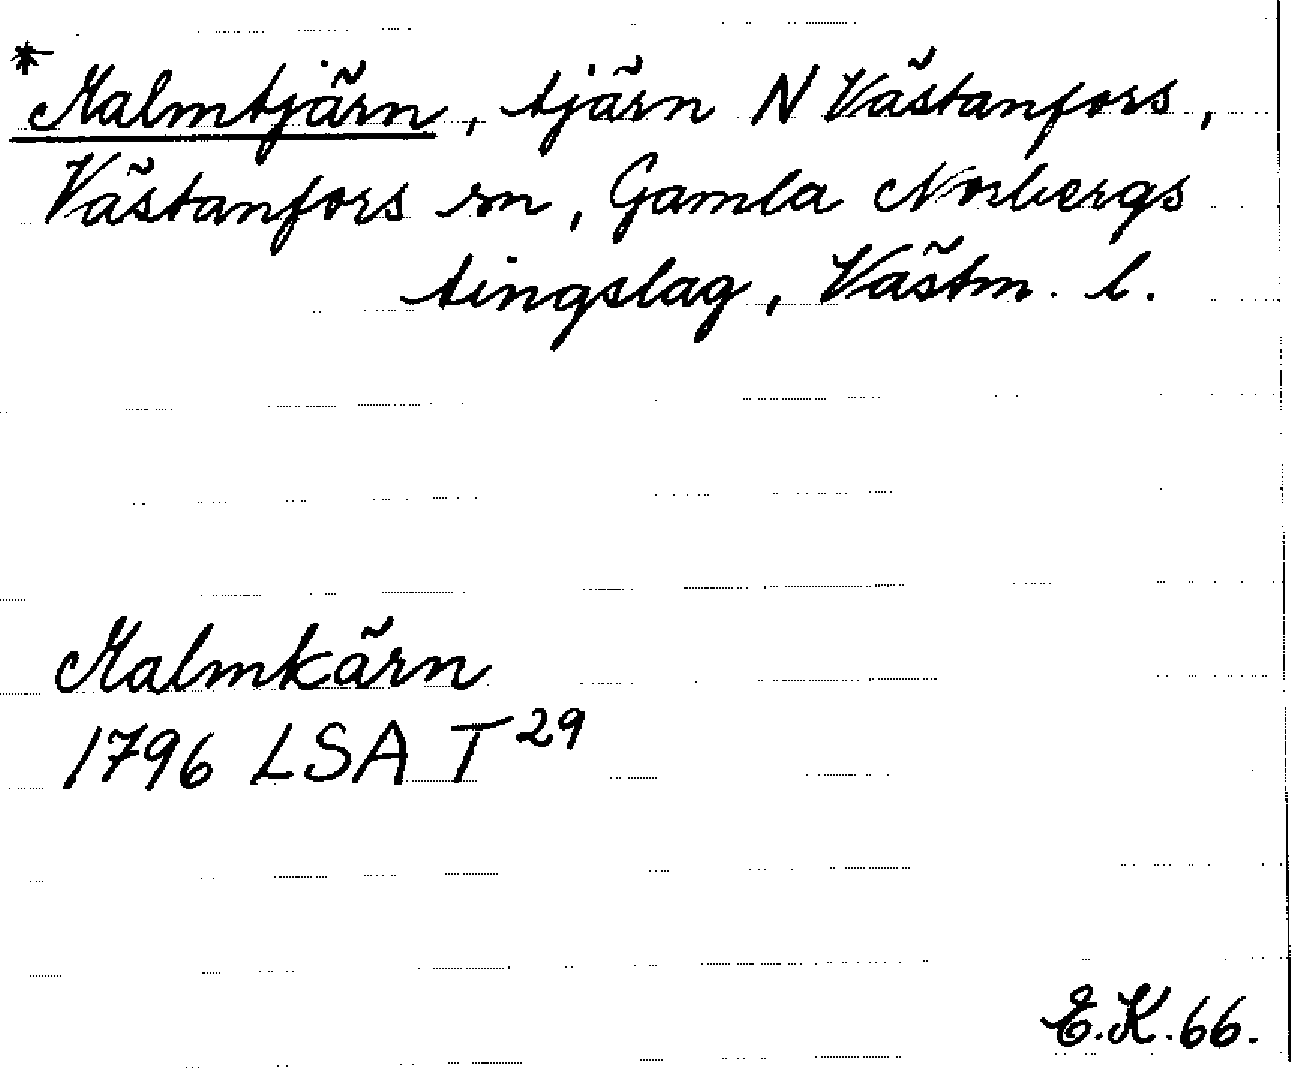 *Malmtjärn, tjärn N Västanfors,
Västanfors sn, Gamla Norbergs
tingslag, Västm. l.
Malmkärn
1796 LSA T 29
E.K.66.